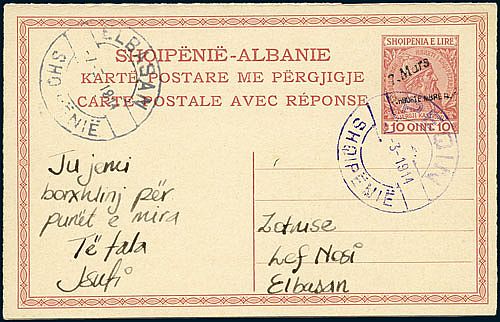 SHQIPËNIË-ALBANIE
KARTË POSTARE ME PËRGJIGJE
CARTE POSTALE AVEC RÉPONSE
SHQIPENIA E LIRE
7. Mars
10 QINT 10
ELBASAN
1914
SHQIPËNIË
PEQIN
-3-1914
SHQIPËNIË
Ju jemi
borxhlinj për
punët e mira
Të fala
Jsufi
Zotnise
Lef Nosi
Elbasan